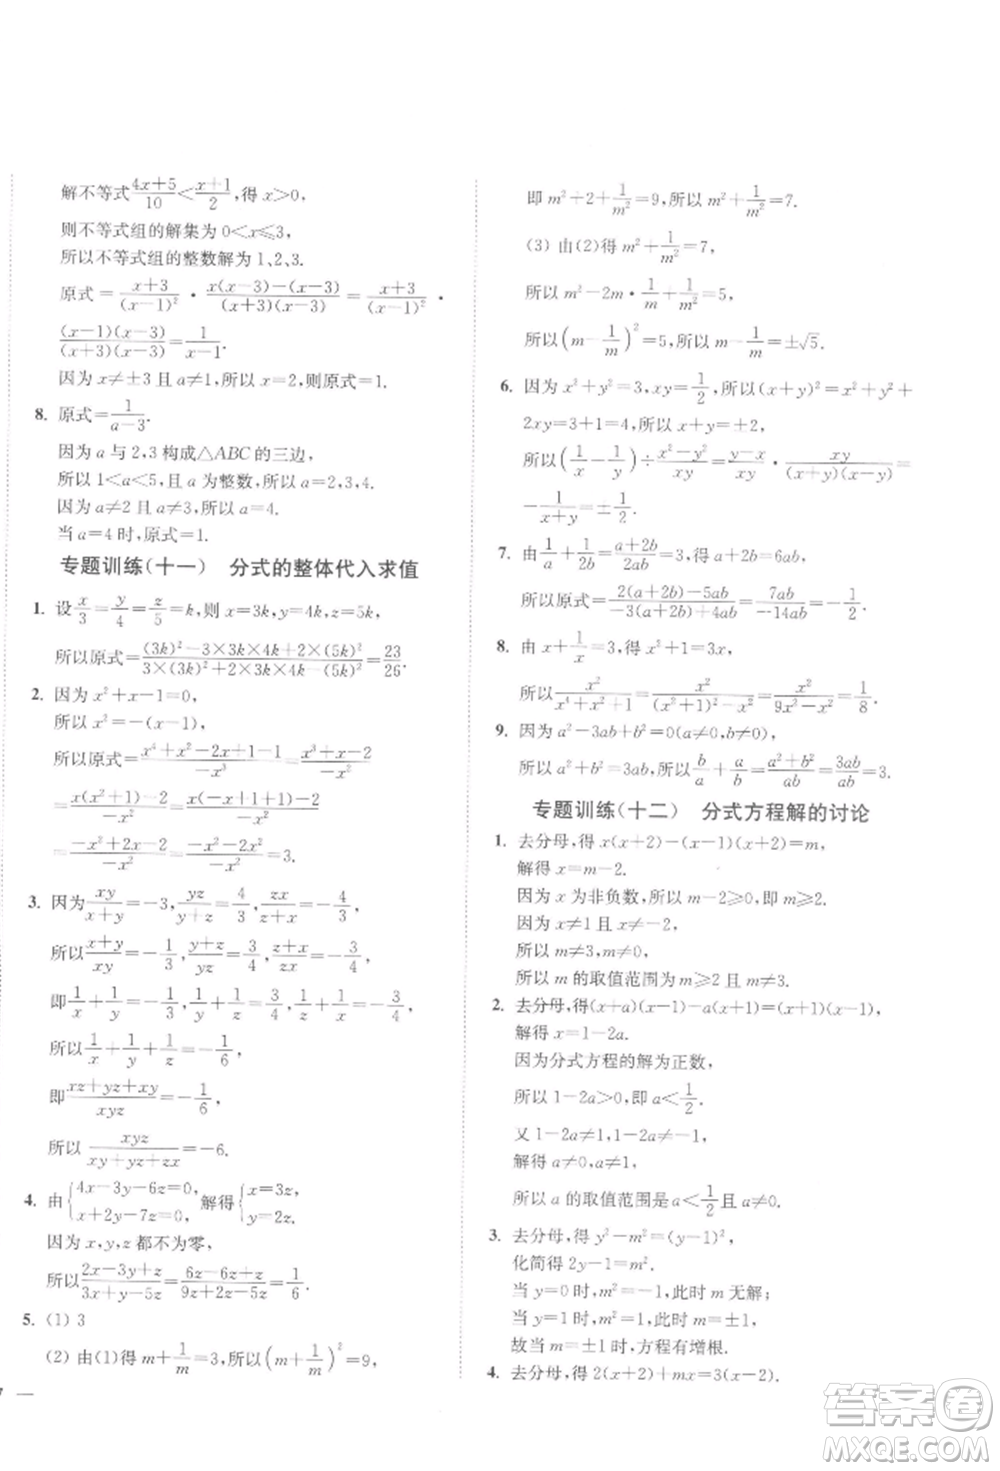 解不等式(4x+5)/10<(x+1)/2,得 x>0,
则不等式组的解集为 0<x≤3,
所以不等式组的整数解为 1、2、3.
原式=(x+3)/(x-1)²·(x(x-3)-(x-3))/((x+3)(x-3))=(x+3)/(x-1)²·
((x-1)(x-3))/((x+3)(x-3))=1/(x-1).
因为 x≠±3 且 a≠1,所以 x=2,则原式=1.
8. 原式=1/(a-3).
因为 a 与 2,3 构成△ABC 的三边,
所以 1<a<5,且 a 为整数,所以 a=2,3,4.
因为 a≠2 且 a≠3,所以 a=4.
当 a=4 时,原式=1.
专题训练(十一) 分式的整体代入求值
1. 设 x/3=y/4=z/5=k,则 x=3k,y=4k,z=5k,
所以原式=((3k)²-3×3k×4k+2×(5k)²)/(3×(3k)²+2×3k×4k-(5k)²)=23/26.
2. 因为 x²+x-1=0,
所以 x²=-(x-1),
所以原式=(x⁴+x²-2x+1-1)/(-x³)=(x⁴+x²-2x)/(-x³)
=(x(x³+x-2))/(-x³)=(x(-x(x-1)+x-2))/(-x³)
=(-x²+2x-2)/(-x²)=(-x²-2x²)/(-x²)=3.
3. 因为 xy/(x+y)=-3, yz/(y+z)=4/3, zx/(z+x)=-4/3,
所以(x+y)/xy=-1/3,(y+z)/yz=3/4,(z+x)/zx=-3/4,
即1/x+1/y=-1/3,1/y+1/z=3/4,1/z+1/x=-3/4,
所以1/x+1/y+1/z=-1/6,
即(xz+yz+xy)/xyz=-1/6,
所以 xyz/(xy+yz+zx)=-6.
4. 由{4x-3y-6z=0, x+2y-7z=0,解得{x=3z, y=2z.
因为 x,y,z 都不为零,
所以(2x-3y+z)/(3x+y-5z)=(6z-6z+z)/(9z+2z-5z)=1/6.
5. (1) 3
(2) 由(1)得 m+1/m=3,所以(m+1/m)²=9,
即 m²+2+1/m²=9,所以 m²+1/m²=7.
(3) 由(2)得 m²+1/m²=7,
所以 m²-2m·1/m+1/m²=5,
所以(m-1/m)²=5,所以 m-1/m=±√5.
6. 因为 x²+y²=3,xy=1/2,所以(x+y)²=x²+y²+
2xy=3+1=4,所以 x+y=±2,
所以(1/x-1/y)÷(x²-y²)/xy=(y-x)/xy·xy/((x+y)(x-y))=
-1/(x+y)=±1/2.
7. 由1/a+1/2b=(a+2b)/2ab=3,得(a+2b)=6ab,
所以原式=(2(a+2b)-5ab)/(-3(a+2b)+4ab)=7ab/(-14ab)=-1/2.
8. 由 x+1/x=3,得 x²+1=3x,
所以x²/(x⁴+x²+1)=x²/((x²+1)²-x²)=x²/(9x²-x²)=1/8.
9. 因为 a²-3ab+b²=0(a≠0,b≠0),
所以 a²+b²=3ab,所以b/a+a/b=(a²+b²)/ab=3ab/ab=3.
专题训练(十二) 分式方程解的讨论
1. 去分母,得 x(x+2)-(x-1)(x+2)=m,
解得 x=m-2.
因为 x 为非负数,所以 m-2≥0,即 m≥2.
因为 x≠1,所以 x-1≠0,
所以 m≠3,
所以 m 的取值范围为 m≥2 且 m≠3.
2. 去分母,得(x+a)(x-1)-ax=(x+1)(x-1),
解得 x=1-2a.
因为分式方程的解为正数,
所以 1-2a>0,即 a<1/2.
又 1-2a≠1,1-2a≠-1,
解得 a≠0,a≠1,
所以 a 的取值范围是 a<1/2 且 a≠0.
3. 去分母,得 y²-m²=(y-1)²·y,
化简得 2y-m²-1=0.
当 y=0 时,m²=-1,此时 m 无解;
当 y=1 时,m²=1,此时 m=±1.
故当 m=±1 时,方程有增根.
4. 去分母,得 2(x+2)+mx=3(x-2).
答案圈
MXQE.COM